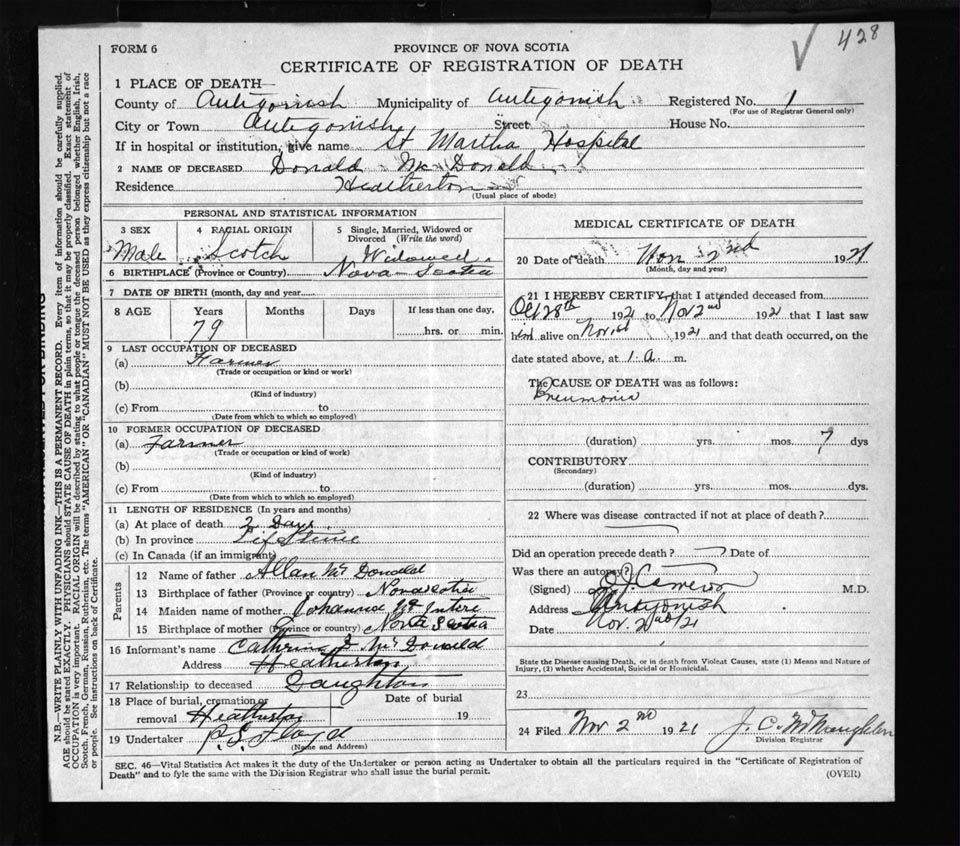 428
FORM 6
PROVINCE OF NOVA SCOTIA
CERTIFICATE OF REGISTRATION OF DEATH
1 PLACE OF DEATH—
County of Antigonish Municipality of Antigonish Registered No. 1
(For use of Registrar General only)
City or Town Antigonish Street House No.
If in hospital or institution, give name St Martha Hospital
2 NAME OF DECEASED Donald McDonald
Residence Heatherton
(Usual place of abode)
PERSONAL AND STATISTICAL INFORMATION
3 SEX 4 RACIAL ORIGIN 5 Single, Married, Widowed or Divorced (Write the word)
Male Scotch Widowed
6 BIRTHPLACE (Province or Country) Nova Scotia
7 DATE OF BIRTH (month, day and year)
8 AGE Years Months Days If less than one day,
79 hrs. or min.
9 LAST OCCUPATION OF DECEASED
(a) Farmer
(Trade or occupation or kind or work)
(b)
(Kind of industry)
(c) From to
(Date from which to which so employed)
10 FORMER OCCUPATION OF DECEASED
(a) Farmer
(Trade or occupation or kind of work)
(b)
(Kind of industry)
(c) From to
(Date from which to which so employed)
11 LENGTH OF RESIDENCE (In years and months)
(a) At place of death 2 Days
(b) In province Life time
(c) In Canada (if an immigrant)
Parents
12 Name of father Allan McDonald
13 Birthplace of father (Province or country) Nova Scotia
14 Maiden name of mother
15 Birthplace of mother (Province or country) Nova Scotia
16 Informant's name McDonald
Address Heatherton
17 Relationship to deceased Daughter
18 Place of burial, cremation or removal Heatherton Date of burial 19
19 Undertaker
(Name and Address)
MEDICAL CERTIFICATE OF DEATH
20 Date of death Nov 2nd 1921
(Month, day and year)
21 I HEREBY CERTIFY, that I attended deceased from
Oct 28th 1921 to Nov 2nd 1921 that I last saw
him alive on Nov 1st 1921 and that death occurred, on the
date stated above, at 1 a. m.
The CAUSE OF DEATH was as follows:
Pneumonia
(duration) yrs. mos. 7 dys
CONTRIBUTORY
(Secondary)
(duration) yrs. mos. dys.
22 Where was disease contracted if not at place of death?
Did an operation precede death? Date of
Was there an autopsy?
(Signed) Cameron M.D.
Address Antigonish
Date Nov. 2nd/21
State the Disease causing Death, or in death from Violent Causes, state (1) Means and Nature of
Injury, (2) whether Accidental, Suicidal or Homicidal.
23
24 Filed Nov 2nd 1921 J. C. McNaughton
Division Registrar
SEC. 46—Vital Statistics Act makes it the duty of the Undertaker or person acting as Undertaker to obtain all the particulars required in the "Certificate of Registration of
Death" and to fyle the same with the Division Registrar who shall issue the burial permit.
(OVER)
N.B.—WRITE PLAINLY WITH UNFADING INK—THIS IS A PERMANENT RECORD. Every item of information should be carefully supplied.
AGE should be stated EXACTLY. PHYSICIANS should STATE CAUSE OF DEATH in plain terms, so that it may be properly classified. Exact statement of
OCCUPATION is very important. RACIAL ORIGIN will be described by stating to what people or tongue the deceased person belonged, whether English, Irish,
Scotch, French, German, Russian, Ruthenian, etc. The terms "AMERICAN" OR "CANADIAN" MUST NOT BE USED as they express citizenship but not a race
or people. See instructions on back of Certificate.